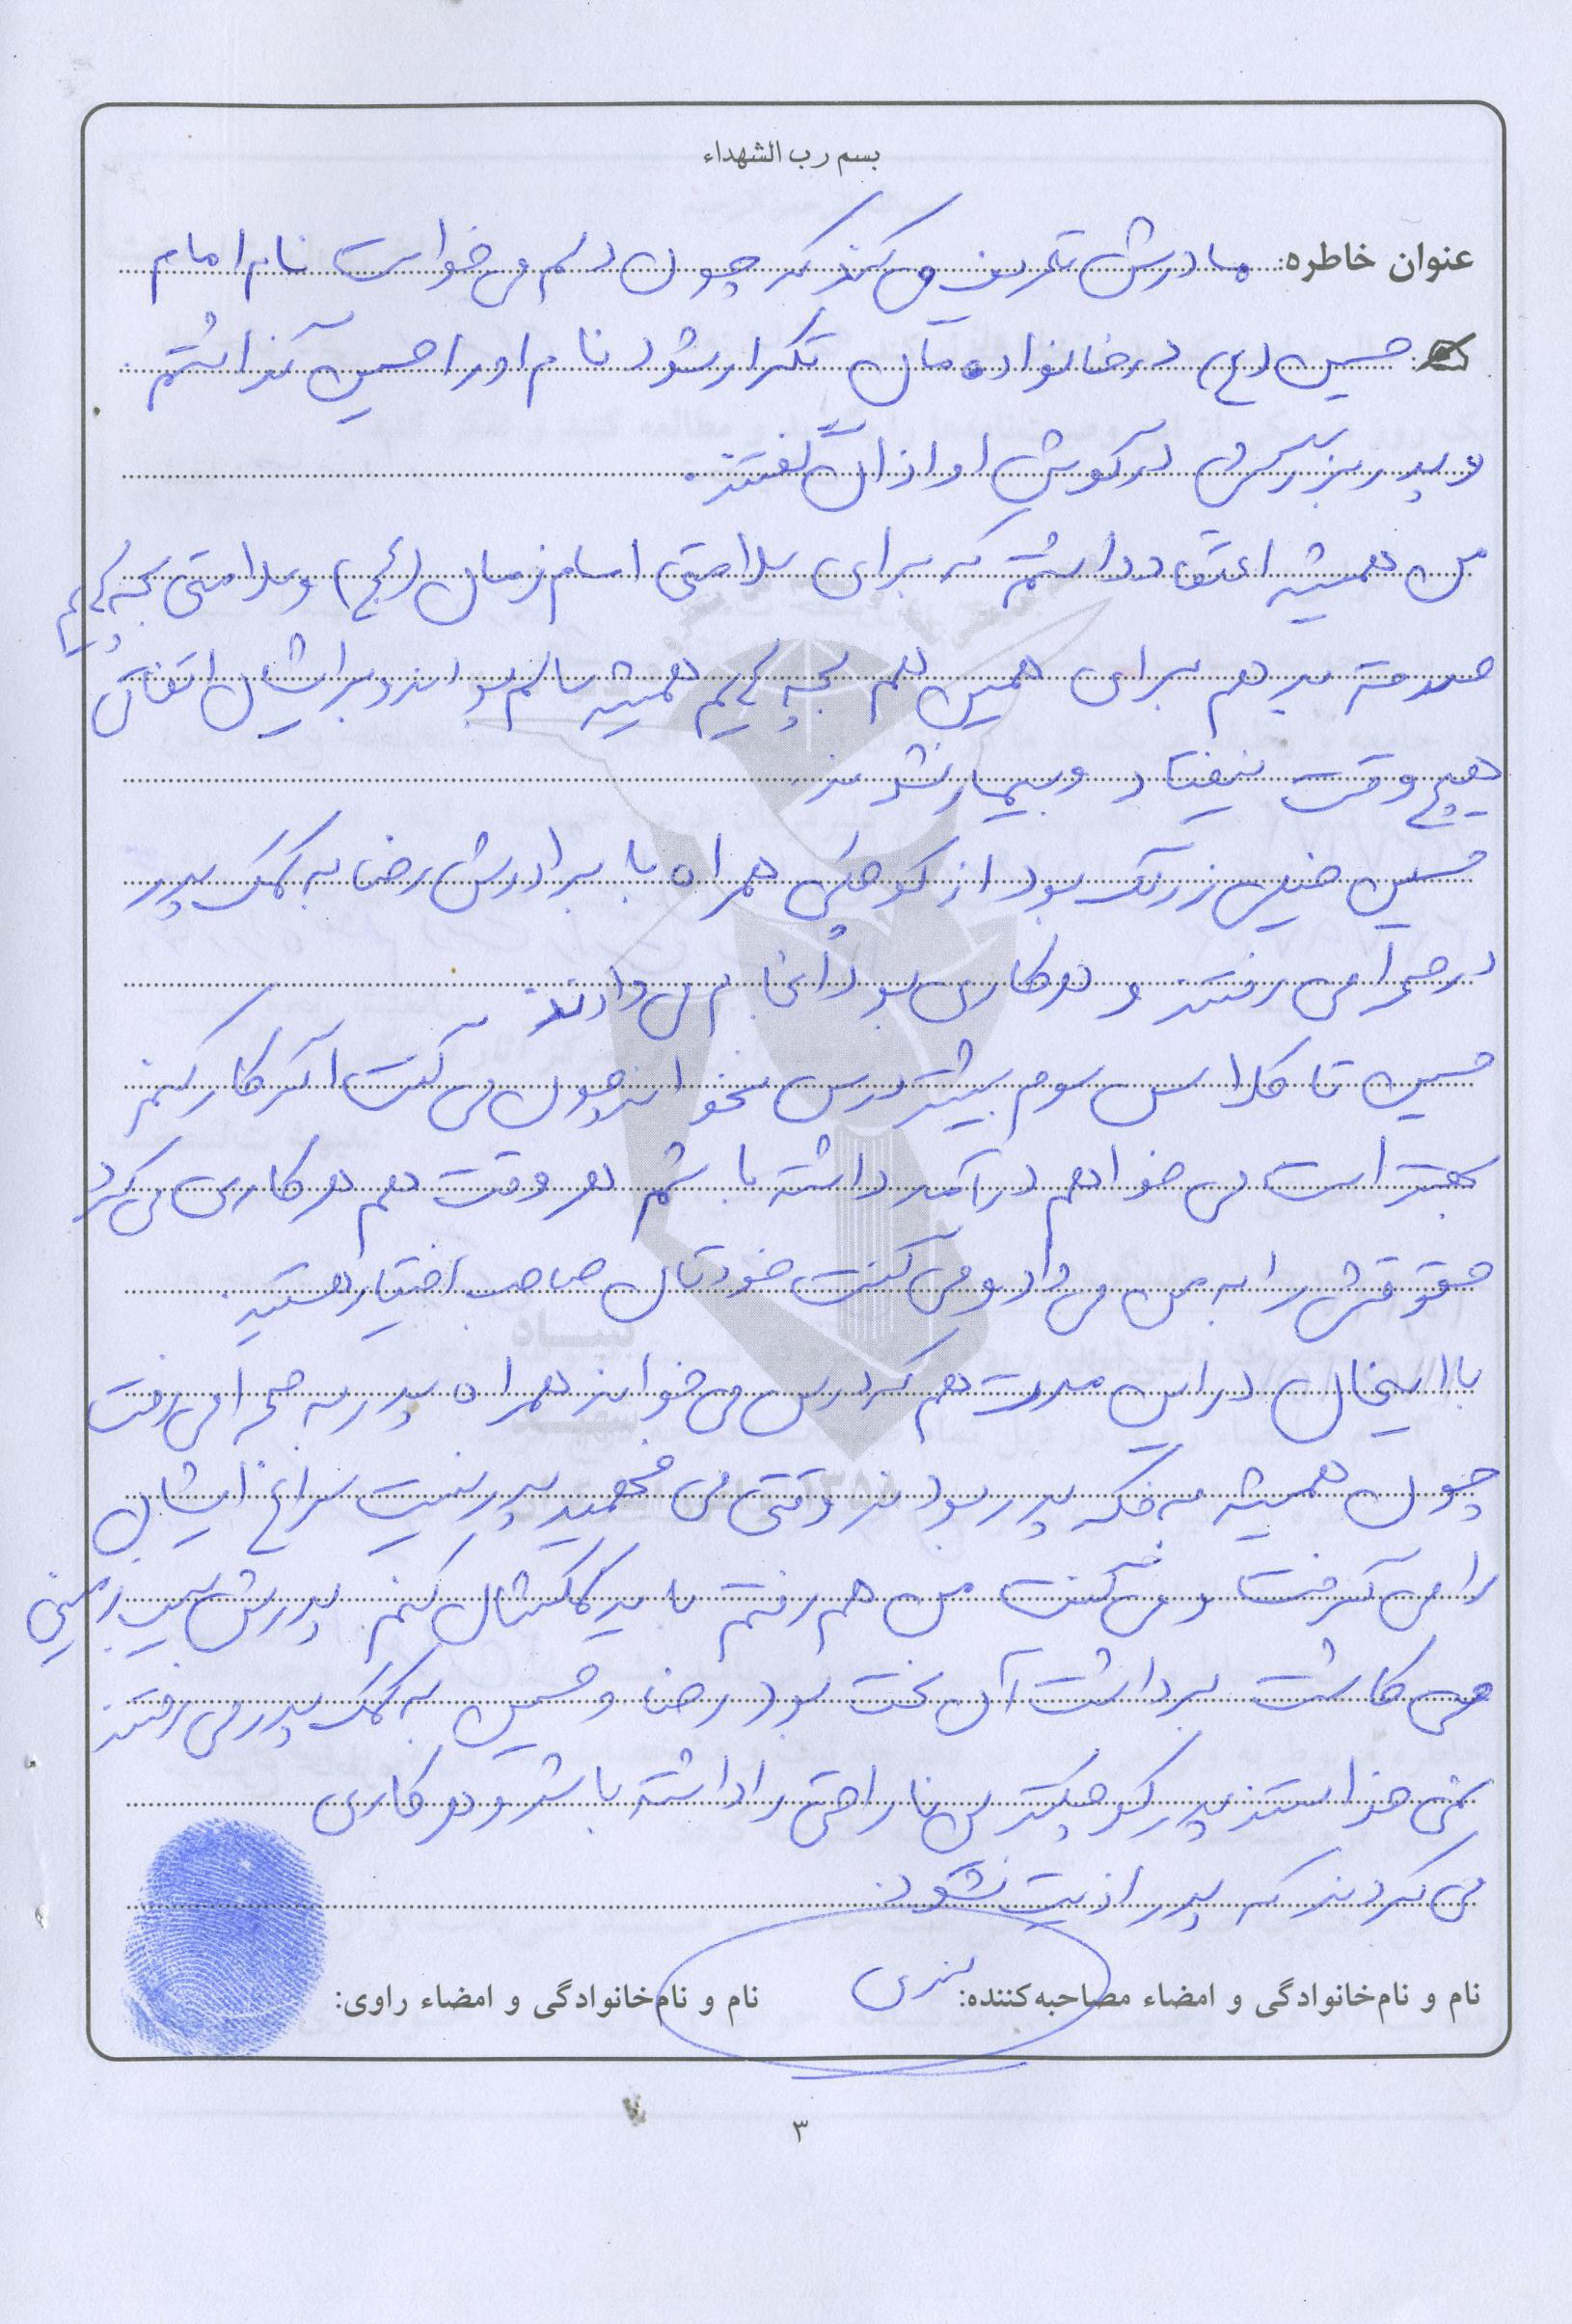 بسم رب الشهداء
عنوان خاطره: مادرش تعریف می کند که چون دلم می خواست نام امام
حسین (ع) در خانواده مان تکرار شود نام او را حسین گذاشتم
و پدربزرگش در گوش او اذان گفتند.
من همیشه اعتقاد داشتم که برای سلامتی امام زمان (عج) و سلامتی بچه هایم
صدقه بدهم برای همین هم بچه هایم همیشه سالم بودند و برایشان اتفاقی
هیچ وقت نیفتاد و بیمار نشدند.
حسین خیلی زرنگ بود از کوچکی همراه با برادرش رضا به کمک پدر
در صحرا می رفتند و هر کاری بود انجام می دادند
حسین تا کلاس سوم بیشتر درس نخواند چون می گفت اگر کار کنم
بهتر است می خواهم درآمد داشته باشم هر وقت هم هر کاری می کرد
حقوقش را به من می داد و می گفت خودتان صاحب اختیار هستید.
با اینحال در این مدت هم که درس می خواند همراه پدر به صحرا می رفت
چون همیشه به فکر پدر بودند وقتی می فهمید پدر نیست سراغ ایشان
را می گرفت و می گفت من هم رفتم باید کمکشان کنم. پدرش سیب زمینی
می کاشت برداشت آن سخت بود رضا و حسین به کمک پدر می رفتند
نمی خواستند پدر کوچکترین ناراحتی را داشته باشد و هر کاری
می کردند که پدر اذیت نشود.
نام و نام‌خانوادگی و امضاء مصاحبه‌کننده:
نام و نام‌خانوادگی و امضاء راوی:
۳